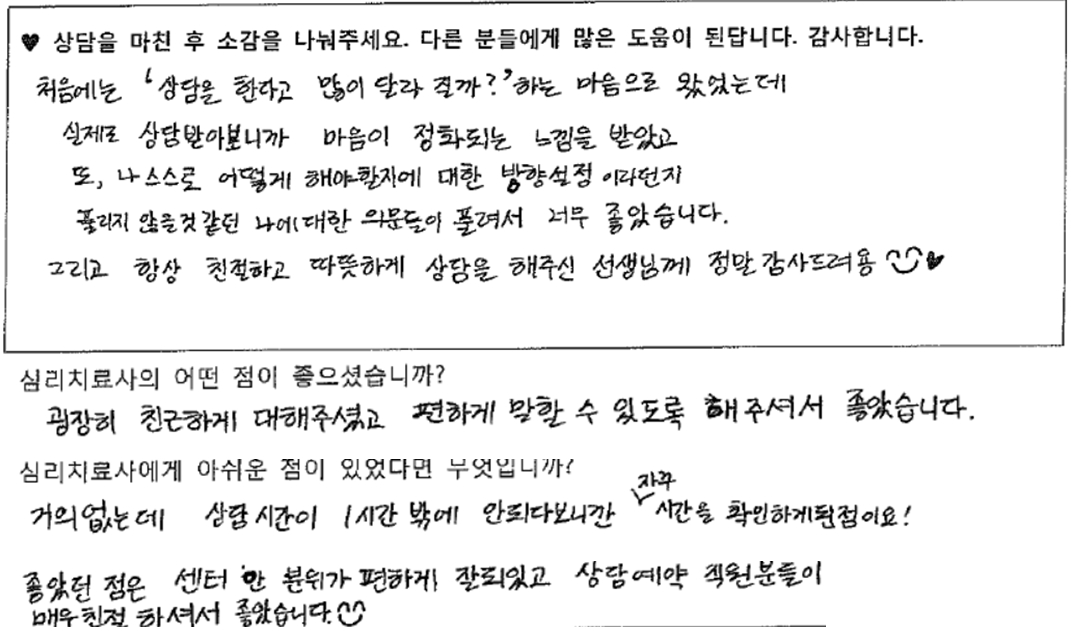 ♥ 상담을 마친 후 소감을 나눠주세요. 다른 분들에게 많은 도움이 된답니다. 감사합니다.
처음에는 '상담을 한다고 많이 달라 질까?' 하는 마음으로 왔었는데
실제로 상담받아보니까 마음이 정화되는 느낌을 받았고
또, 나 스스로 어떻게 해야할지에 대한 방향설정 이라던지
풀리지 않을것 같던 나에대한 의문들이 풀려서 너무 좋았습니다.
그리고 항상 친절하고 따뜻하게 상담을 해주신 선생님께 정말 감사드려용 ♥
심리치료사의 어떤 점이 좋으셨습니까?
굉장히 친근하게 대해주셨고 편하게 말할 수 있도록 해주셔서 좋았습니다.
심리치료사에게 아쉬운 점이 있었다면 무엇입니까?
거의없는데 상담시간이 1시간 밖에 안되다보니깐 자꾸 시간을 확인하게된점이요!
좋았던 점은 센터 안 분위가 편하게 잘되있고 상담예약 직원분들이
매우친절 하셔서 좋았습니다.